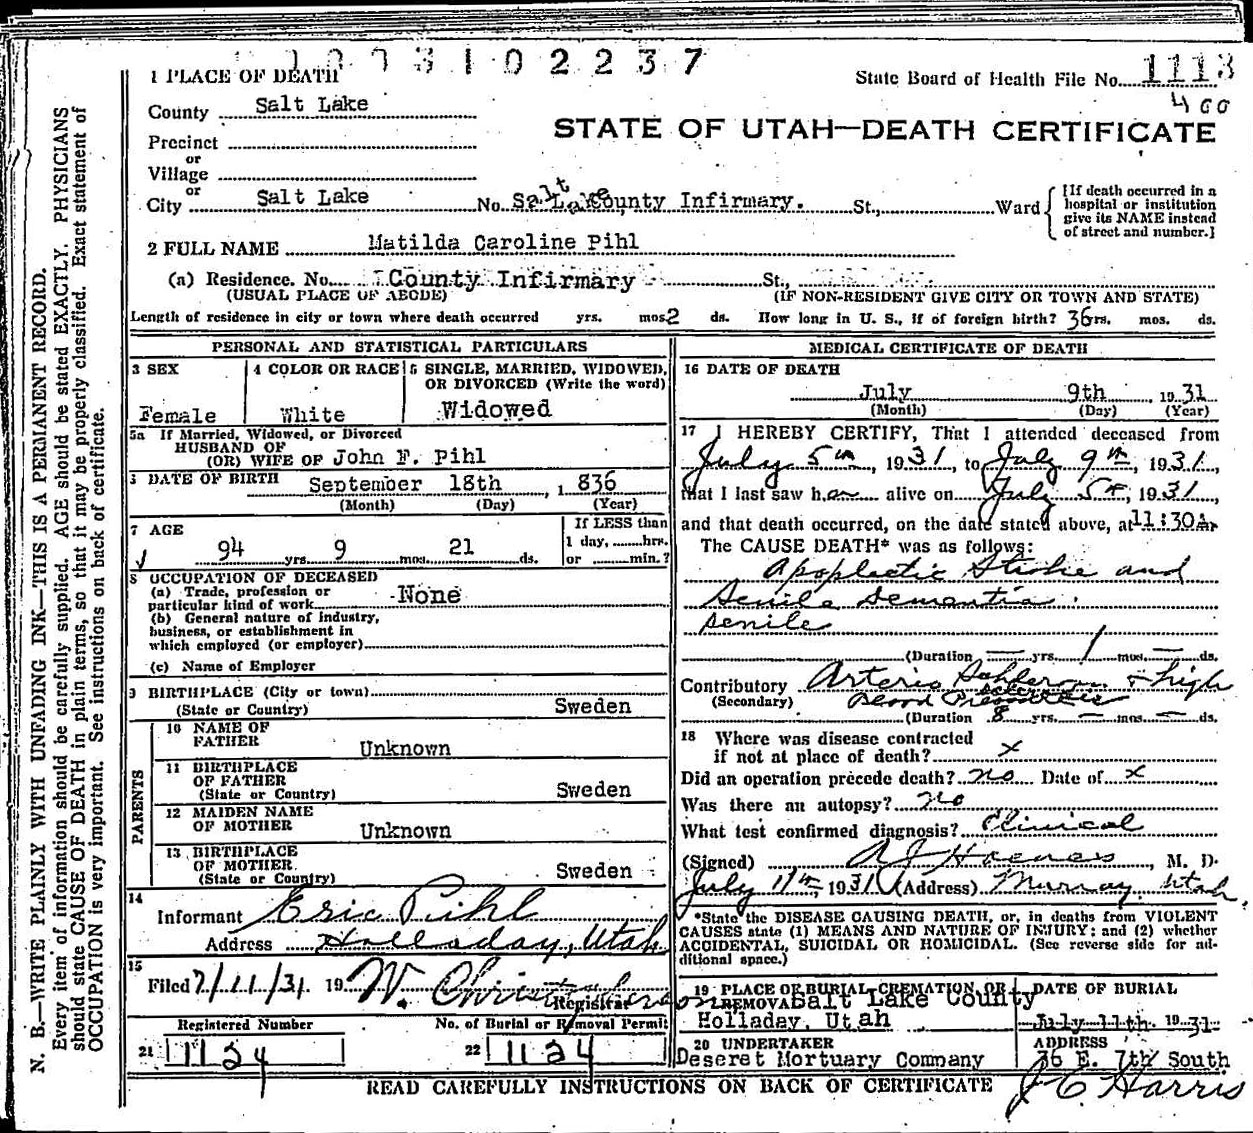 1 0 0 3 1 0 2 2 3 7
1 PLACE OF DEATH
State Board of Health File No. 1113
400
County Salt Lake
STATE OF UTAH—DEATH CERTIFICATE
Precinct
or
Village
or
City Salt Lake No. Salt Lake County Infirmary. St., Ward
[If death occurred in a
hospital or institution
give its NAME instead
of street and number.]
2 FULL NAME Matilda Caroline Pihl
(a) Residence. No. County Infirmary St.,
(USUAL PLACE OF ABODE) (IF NON-RESIDENT GIVE CITY OR TOWN AND STATE)
Length of residence in city or town where death occurred yrs. mos. 2 ds. How long in U. S., if of foreign birth? 36 yrs. mos. ds.
PERSONAL AND STATISTICAL PARTICULARS
3 SEX
Female
4 COLOR OR RACE
White
5 SINGLE, MARRIED, WIDOWED,
OR DIVORCED (Write the word)
Widowed
5a If Married, Widowed, or Divorced
HUSBAND OF
(OR) WIFE OF John F. Pihl
DATE OF BIRTH September 18th, 1836
(Month) (Day) (Year)
7 AGE
94 yrs. 9 mos. 21 ds.
If LESS than
1 day, hrs.
or min.?
8 OCCUPATION OF DECEASED
(a) Trade, profession or
particular kind of work None
(b) General nature of industry,
business, or establishment in
which employed (or employer)
(c) Name of Employer
9 BIRTHPLACE (City or town)
(State or Country) Sweden
PARENTS
10 NAME OF
FATHER Unknown
11 BIRTHPLACE
OF FATHER
(State or Country) Sweden
12 MAIDEN NAME
OF MOTHER Unknown
13 BIRTHPLACE
OF MOTHER
(State or Country) Sweden
14
Informant Eric Pihl
Address Holladay, Utah
15
Filed 7/11/31 19 W. Christopherson
Registrar
Registered Number
21 1124
No. of Burial or Removal Permit
22 1124
MEDICAL CERTIFICATE OF DEATH
16 DATE OF DEATH
July 9th, 1931
(Month) (Day) (Year)
17 I HEREBY CERTIFY, That I attended deceased from
July 5th, 1931, to July 9th, 1931,
that I last saw her alive on July 5th, 1931,
and that death occurred, on the date stated above, at 11:30 A.
The CAUSE DEATH* was as follows:
Apoplectic Stroke and
Senile Dementia.
Senile
(Duration — yrs. 1 mos. — ds.
Contributory Arterio Schleroses & high
(Secondary) sclerosis Blood Pressure
(Duration 8 yrs. — mos. — ds.
18 Where was disease contracted
if not at place of death? x
Did an operation precede death? no Date of x
Was there an autopsy? no
What test confirmed diagnosis? Clinical
(Signed) M. D.
July 11th, 1931 (Address) Murray, Utah.
*State the DISEASE CAUSING DEATH, or, in deaths from VIOLENT
CAUSES state (1) MEANS AND NATURE OF INJURY; and (2) whether
ACCIDENTAL, SUICIDAL OR HOMICIDAL. (See reverse side for ad-
ditional space.)
19 PLACE OF BURIAL, CREMATION, OR
REMOVAL Salt Lake County
Holladay, Utah
DATE OF BURIAL
July 11th. 1931
20 UNDERTAKER
Deseret Mortuary Company
ADDRESS
36 E. 7th South
J C Harris
READ CAREFULLY INSTRUCTIONS ON BACK OF CERTIFICATE
N. B.—WRITE PLAINLY WITH UNFADING INK—THIS IS A PERMANENT RECORD.
Every item of information should be carefully supplied. AGE should be stated EXACTLY. PHYSICIANS
should state CAUSE OF DEATH in plain terms, so that it may be properly classified. Exact statement of
OCCUPATION is very important. See instructions on back of certificate.